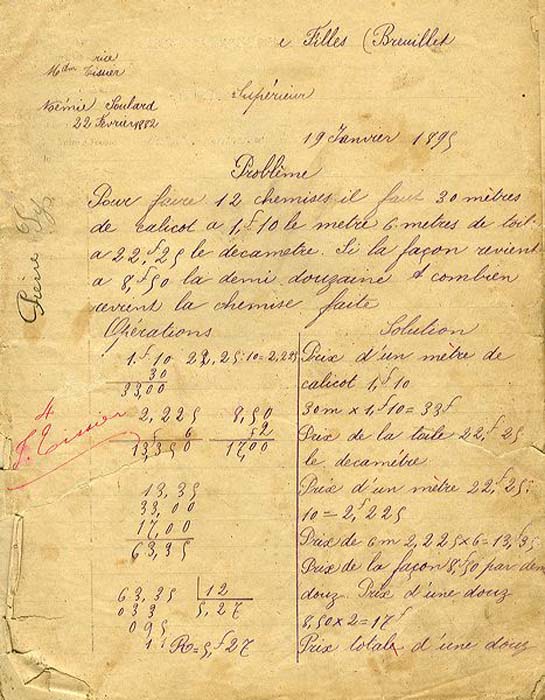 e Filles (Breuillet
rice
Mdm Tissier
Supérieur
Noémie Soulard
22 Février 1882
19 Janvier 1895
Problème
Pour faire 12 chemises il faut 30 mètres
de calicot a 1,f10 le metre 6 metres de toil
a 22,f25 le decametre. Si la façon revient
a 8,f50 la demi douzaine A combien
revient la chemise faite
Opérations
1.f10 22,25:10=2,225
30
33,00
2,225 8,50
6 f2
13,350 17,00
13,35
33,00
17,00
63,35
63,35 12
033 5,27
095
1 R=5,f27
4
F. Tissier
Solution
Prix d'un mètre de
calicot 1,f10
30m x 1,f10=33f
Prix de la toile 22,f25
le decamétre
Prix d'un mètre 22,f25:
10=2,f225
Prix de 6m 2,225x6=13,f35
Prix de la façon 8,f50 par dem
douz. Prix d'une douz
8,50x2=17f
Prix totale d'une douz